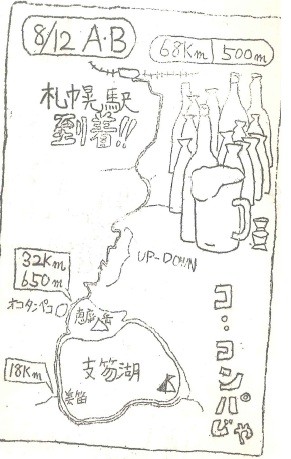 8/12 A・B
68Km 500m
札幌駅
到着!!
UP-DOWN
32Km
650m
オコタンペコ
恵庭岳
支笏湖
18Km
美笛
コ・コンパ
じゃ